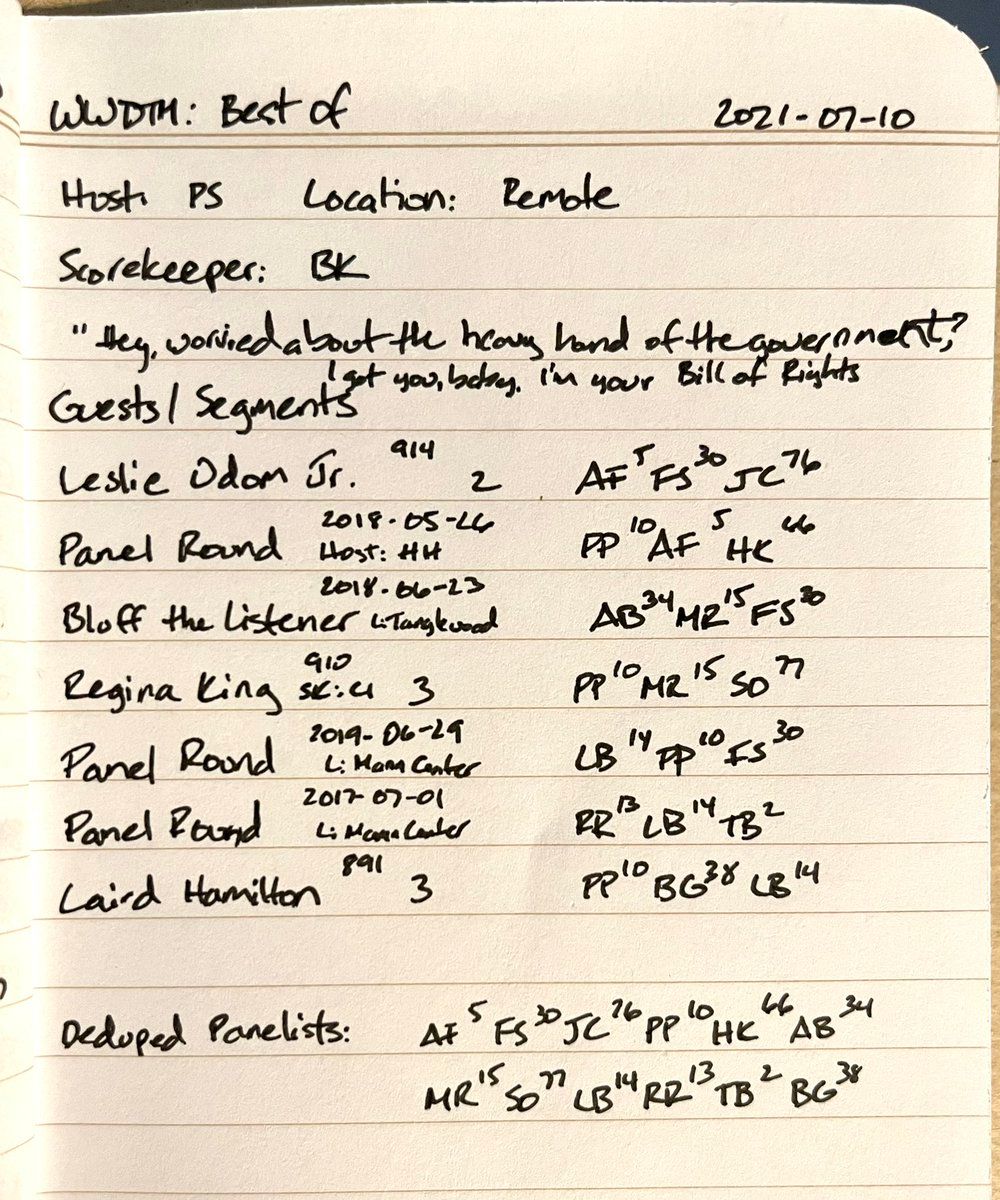 WWDTM: Best of 2021-07-10
Host: PS Location: Remote
Scorekeeper: BK
"Hey, worried about the heavy hand of the government?
I got you, baby. I'm your Bill of Rights
Guests/Segments
Leslie Odom Jr. 914 2 AF 5 FS 30 JC 76
Panel Round 2018-05-26 Host: HH PP 10 AF 5 HK 66
Bluff the Listener 2018-06-23 L: Tanglewood AB 34 MR 15 FS 30
Regina King 910 SK: CJ 3 PP 10 MR 15 SO 77
Panel Round 2019-06-29 L: Mann Center LB 14 PP 10 FS 30
Panel Round 2017-07-01 L: Mann Center RR 13 LB 14 TB 2
Laird Hamilton 891 3 PP 10 BG 38 LB 14
Deduped Panelists: AF 5 FS 30 JC 76 PP 10 HK 66 AB 34
MR 15 SO 77 LB 14 RR 13 TB 2 BG 38